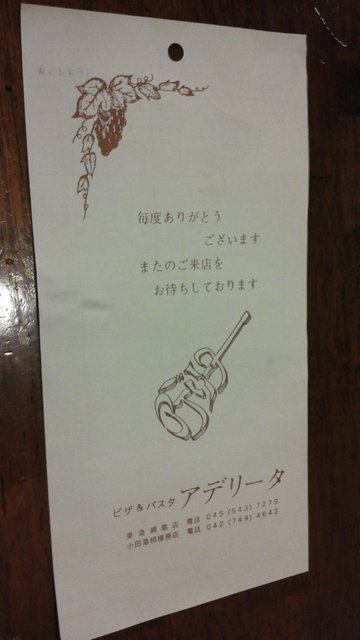 毎度ありがとう
ございます
またのご来店を
お待ちしております
ピザ & パスタ アデリータ
東急綱島店 電話 045 (543) 7279
小田急相模原店 電話 042 (749) 4642